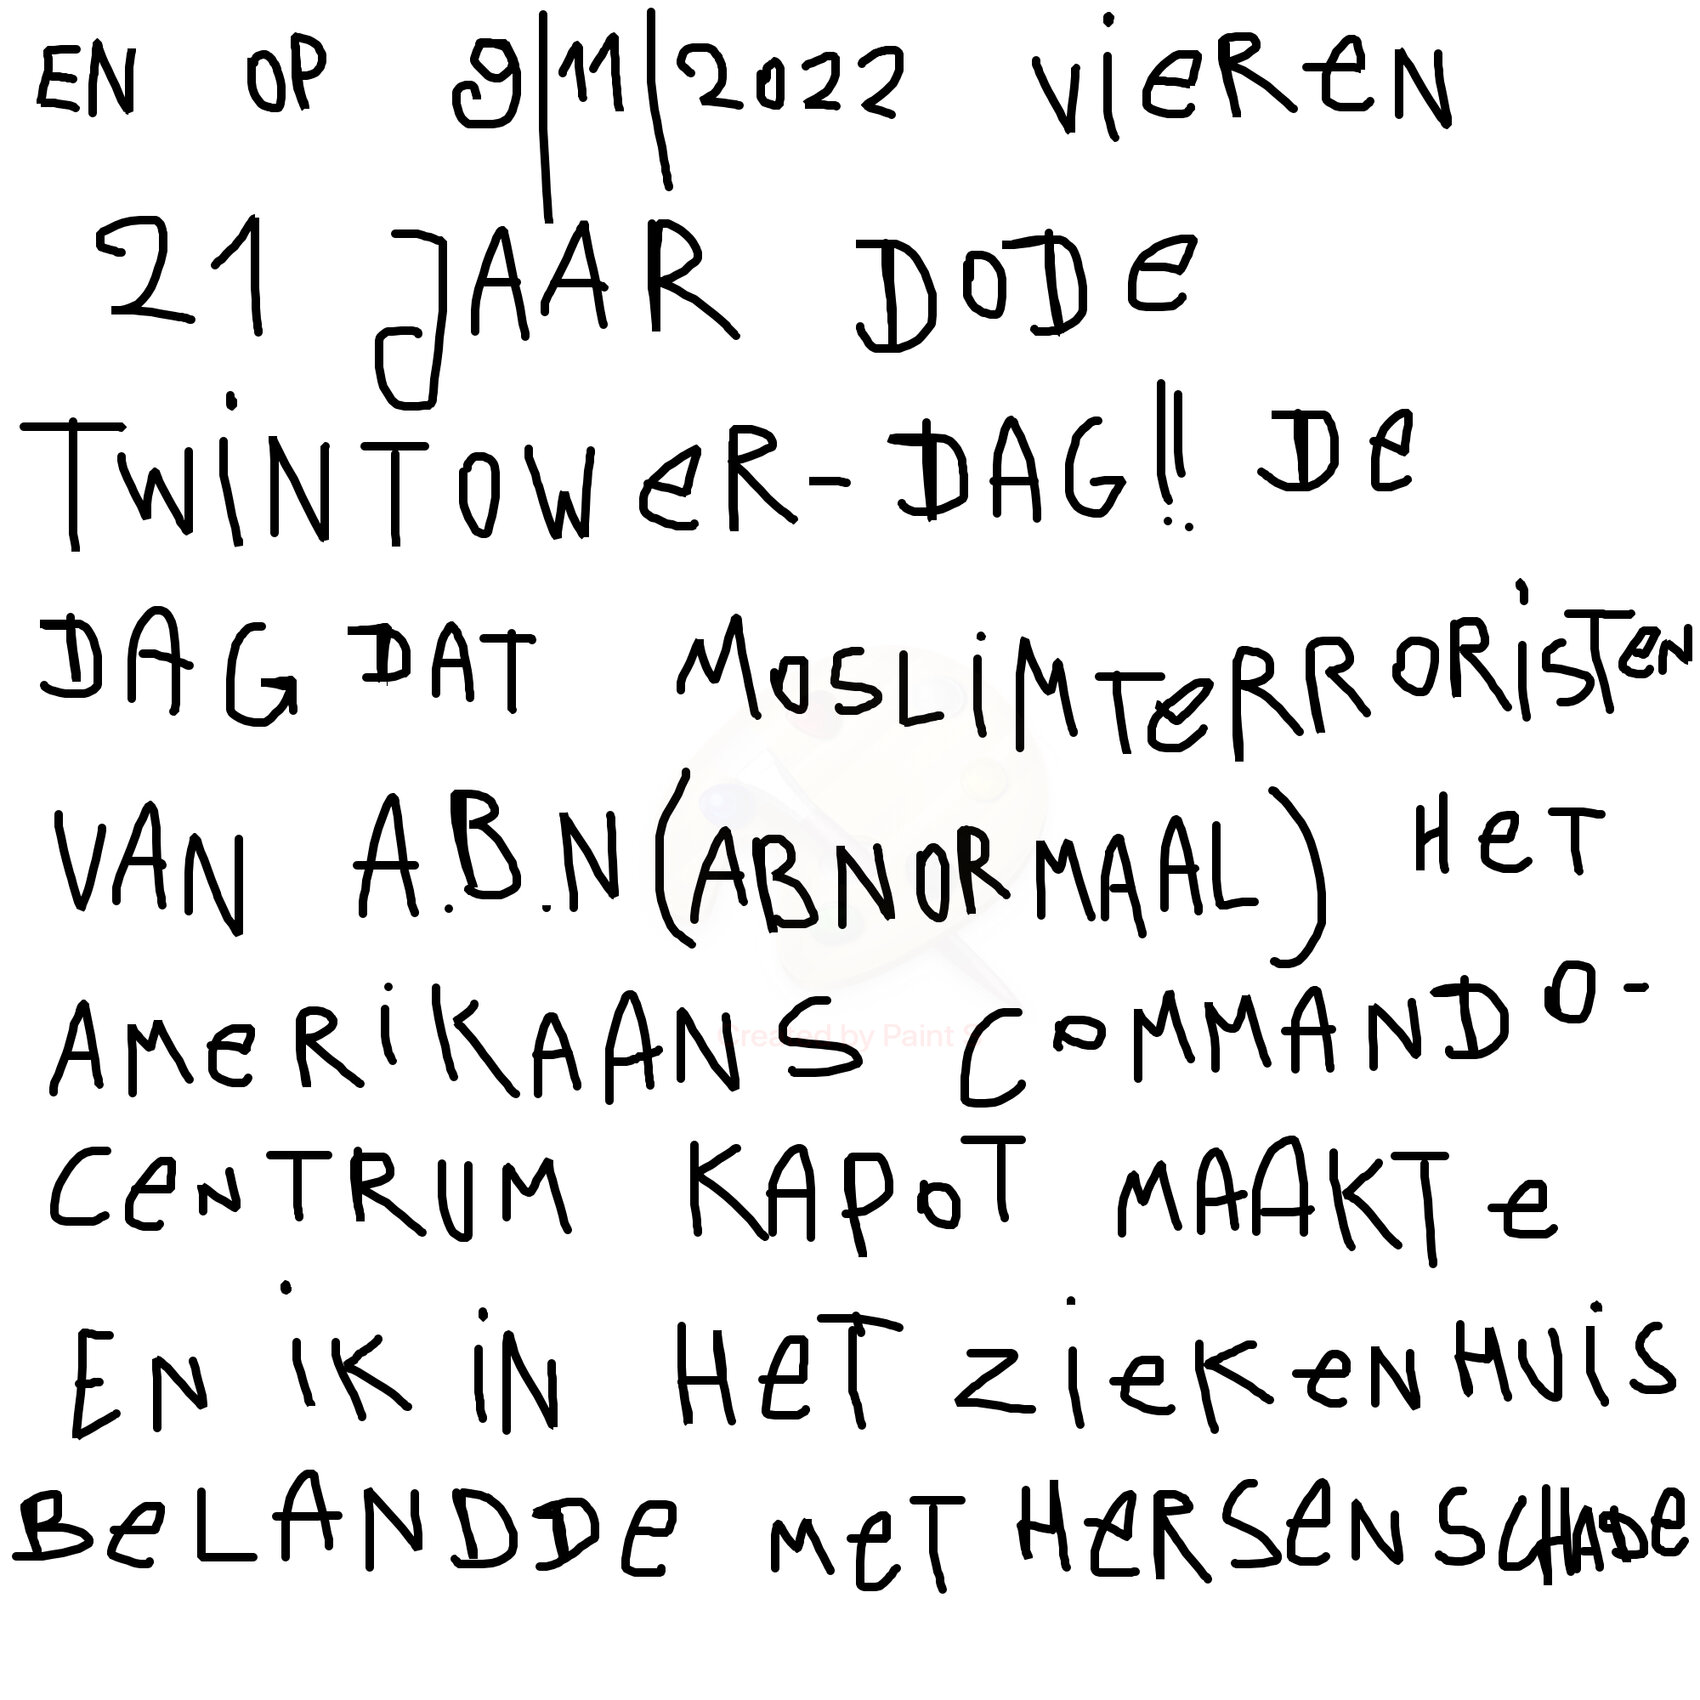 EN OP 9/11/2022 VieReN
21 JAAR DODe
TWiNTOWeR-DAG!! De
DAG DAT MOSLiMTeRRORiSTeN
VAN A.B.N(ABNORMAAL) HeT
AMeRiKAANS COMMANDO-
CeNTRUM KAPOT MAAKTe
EN iK iN HeT ZieKeNHUiS
BeLANDDe MeT HeRSeNSCHADe
Created by Paint S